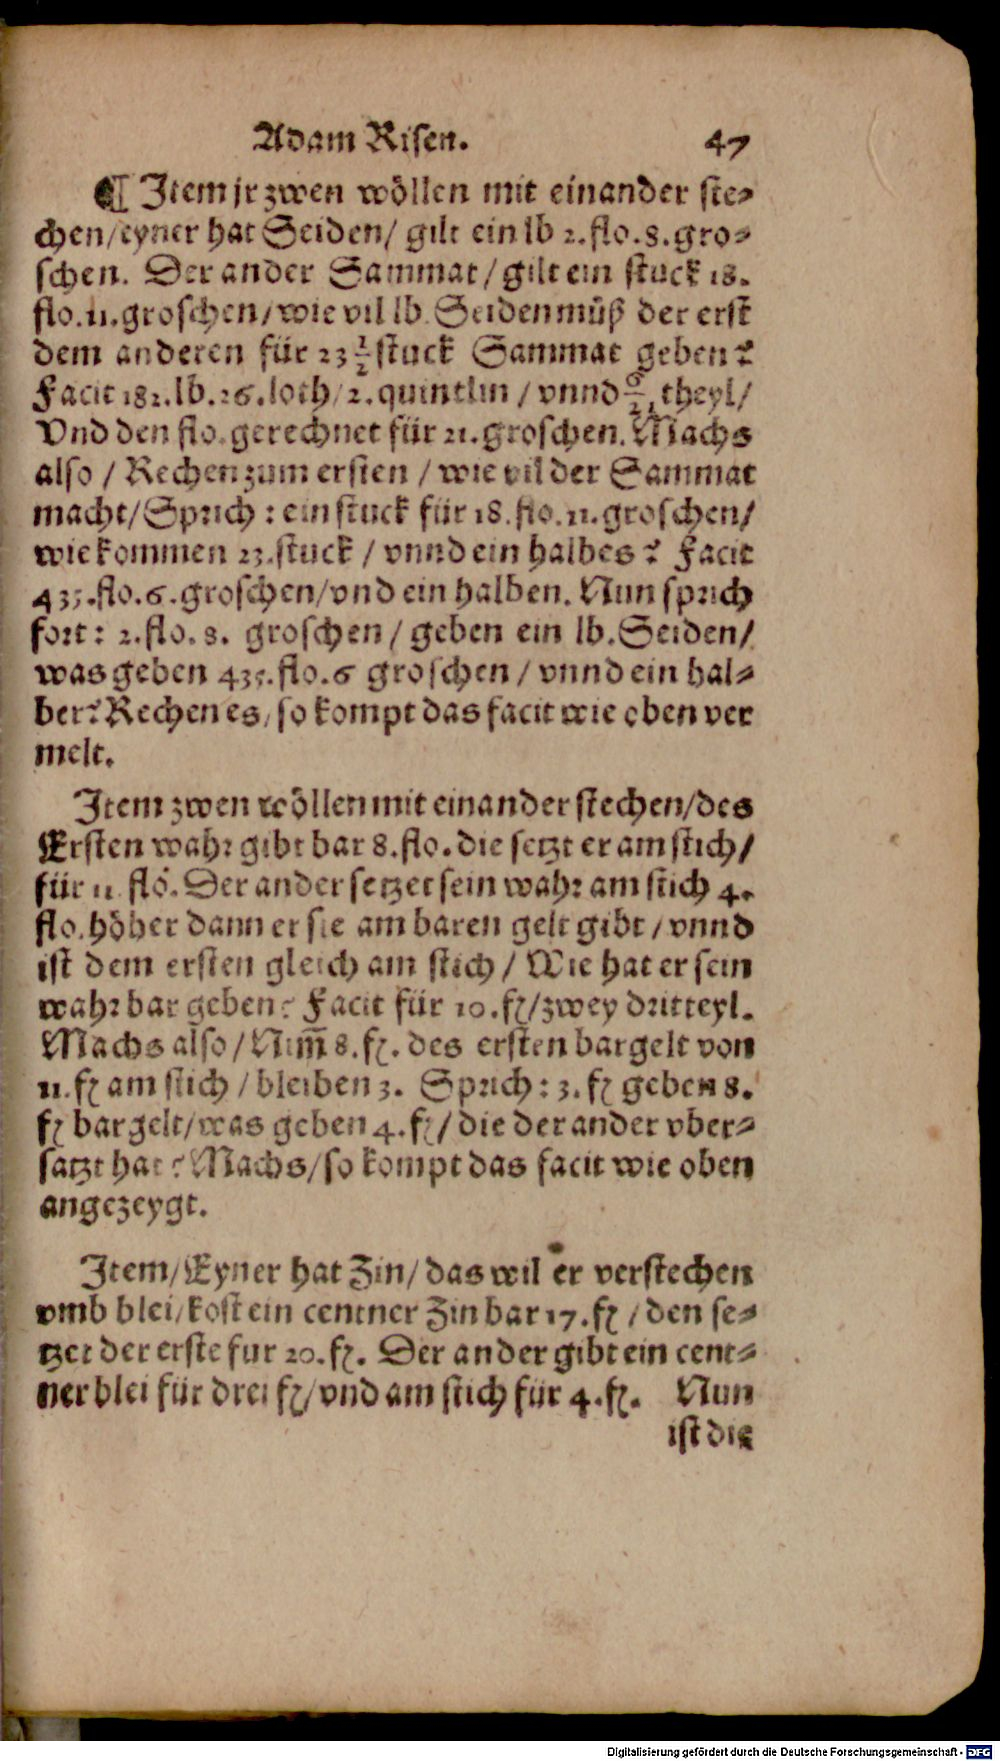 Adam Risen. 47
¶ Item jr zwen wöllen mit einander ste⸗
chen/eyner hat Seiden/ gilt ein lb 2. flo. 8. gro⸗
schen. Der ander Sammat/ gilt ein stuck 18.
flo. 11. groschen/ wie vil lb Seiden můß der erst
dem anderen für 23 1/2 stuck Sammat geben?
Facit 182. lb. 26. loth/ 2. quintlin / vnnd theyl/
Vnd den flo. gerechnet für 21. groschen. Machs
also / Rechen zum ersten / wie vil der Sammat
macht/ Sprich : ein stuck für 18. flo. 11. groschen/
wie kommen 23. stuck / vnnd ein halbes? Facit
435. flo. 6. groschen/ vnd ein halben. Nun sprich
fort: 2. flo. 8. groschen/ geben ein lb. Seiden/
was geben 435. flo. 6 groschen / vnnd ein hal⸗
ber? Rechen es, so kompt das facit wie oben ver
melt.
Item zwen wöllen mit einander stechen/des
Ersten wahr gibt bar 8. flo. die setzt er am stich/
für 11 flo. Der ander setzet sein wahr am stich 4.
flo. höher dann er sie am baren gelt gibt / vnnd
ist dem ersten gleich am stich / Wie hat er sein
wahr bar geben? Facit für 10. fl/zwey dritteyl.
Machs also / Nim̄ 8. fl. des ersten bargelt von
11. fl am stich / bleiben 3. Sprich: 3. fl geben 8.
fl bar gelt/was geben 4. fl/ die der ander vber⸗
satzt hat? Machs/ so kompt das facit wie oben
angezeygt.
Item/ Eyner hat Zin/ das wil er verstechen
vmb blei/ kost ein centner Zin bar 17. fl / den se⸗
tzet der erste fur 20. fl. Der ander gibt ein cent⸗
ner blei für drei fl/ vnd am stich für 4. fl. Nun
ist die
Digitalisierung gefördert durch die Deutsche Forschungsgemeinschaft - DFG